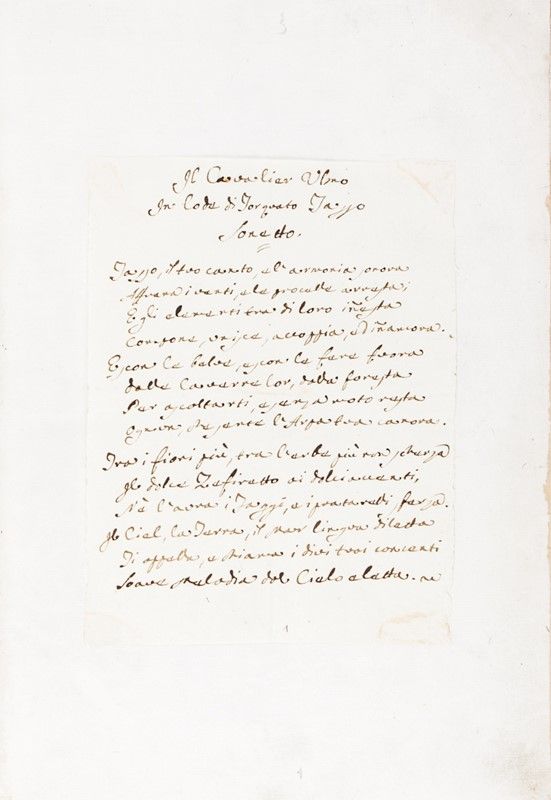 Il Cavalier Ulmo
In lode di Torquato Tasso
Sonetto.
Tasso, il tuo canto, e l'armonia sonora
Affrena i venti, e le procelle arresta;
E gli elementi tra di loro in festa
Compone, unisce, accoppia, ed inamora.
Escon le belve, escon le fere fuora
dalle Caverne lor, dalla foresta
Per ascoltarti, e senza moto resta
Ognun, che sente l'Arpa tua canora.
Tra i fiori più, tra l'erbe più non scherza
Il dolce Zefiretto ai dolci accenti,
Nè l'aura i faggi, e i pratarelli ferza.
Il Ciel, la Terra, il Mar lingua diletta
Ti appella, e chiama i divi tuoi concenti
Soave Melodia del Cielo eletta.